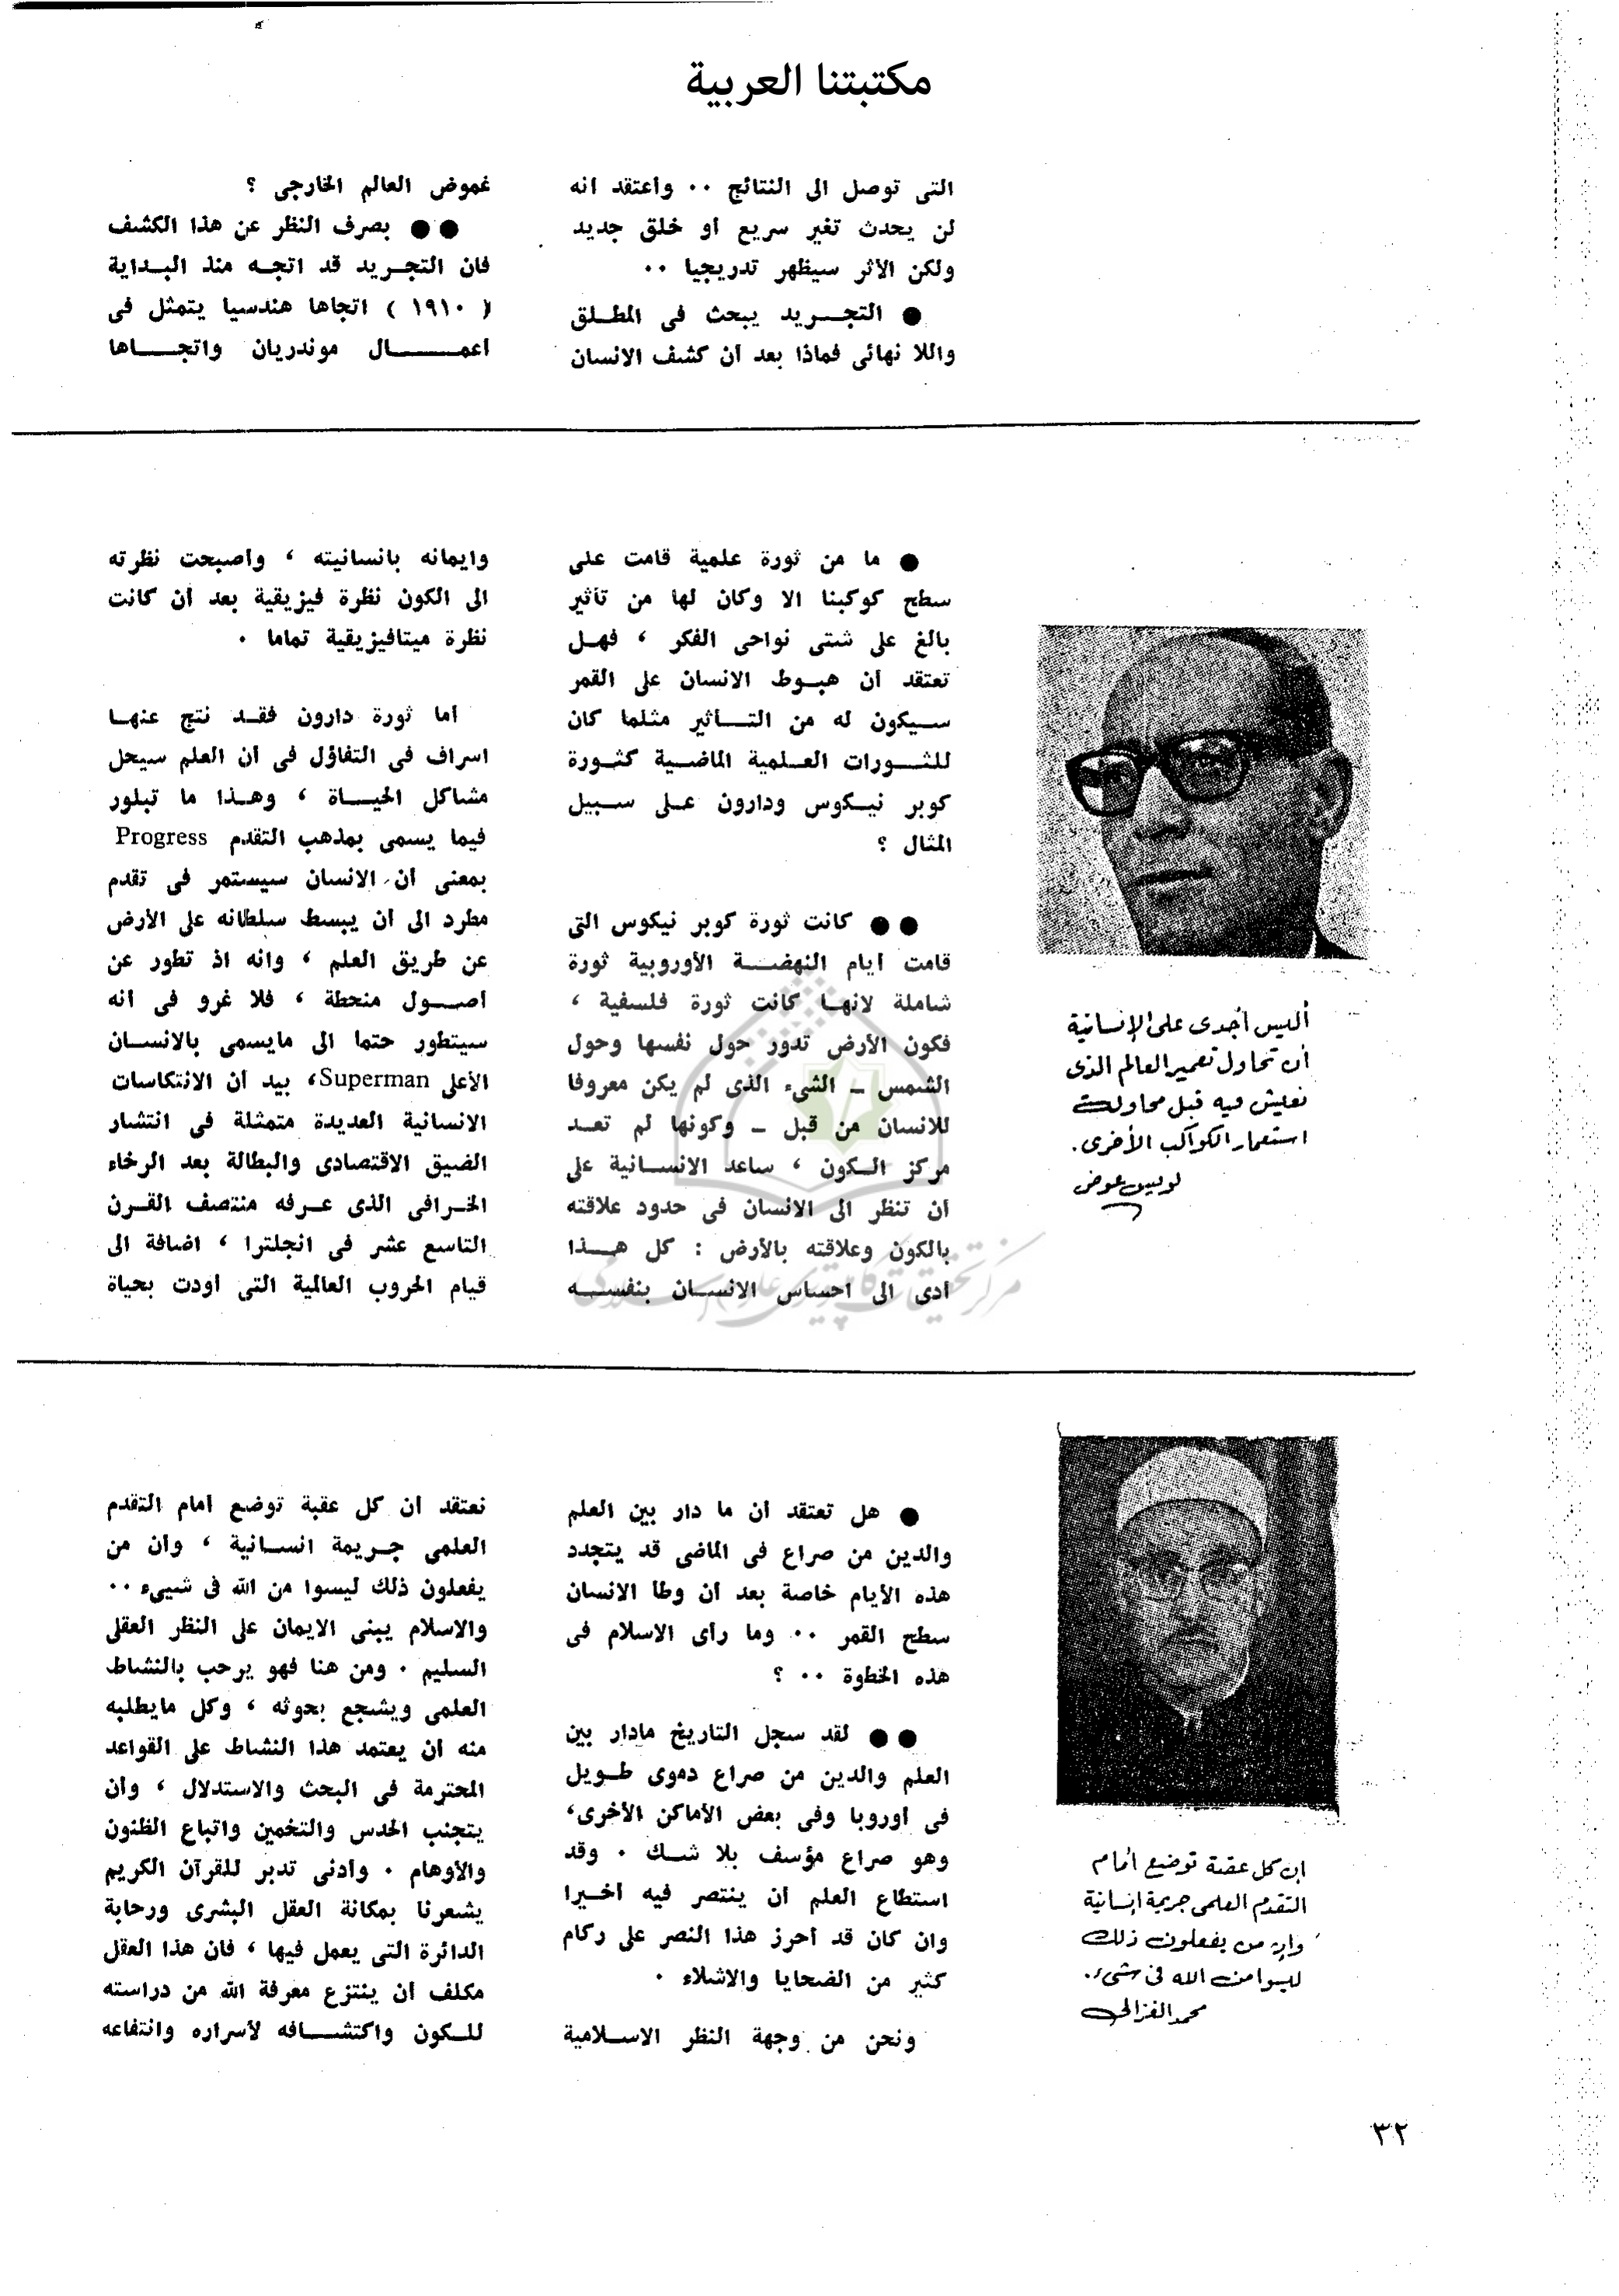 مكتبتنا العربية
التى توصل الى النتائج ٠٠ وأعتقد أنه
لن يحدث تغير سريع أو خلق جديد
ولكن الأثر سيظهر تدريجيا ٠٠
● التجـــريد يبحث فى المطـلق
واللا نهائى فماذا بعد أن كشف الانسان
غموض العالم الخارجى ؟
●● بصرف النظر عن هذا الكشف
فان التجـريد قد اتجـه منذ البـداية
( ١٩١٠ ) اتجاها هندسيا يتمثل فى
أعمـــــال موندريان واتجــــاها
أليس أجدى على الإنسانية
أن تحاول تعمير العالم الذى
نعيش فيه قبل محاولته
استعمار الكواكب الأخرى.
لويس عوض
● ما من ثورة علمية قامت على
سطح كوكبنا الا وكان لها من تأثير
بالغ على شتى نواحى الفكر ، فهـل
تعتقد أن هبـوط الانسان على القمر
سـيكون له من التــأثير مثلما كان
للثــورات العـلمية الماضـية كثـورة
كوبر نيـكوس ودارون عـلى سـبيل
المثال ؟
●● كانت ثورة كوبر نيكوس التى
قامت أيام النهضــة الأوروبية ثورة
شاملة لانهـا كانت ثورة فلسفية ،
فكون الأرض تدور حول نفسها وحول
الشمس ــ الشىء الذى لم يكن معروفا
للانسان من قبل ــ وكونها لم تعـد
مركز الـكون ، ساعد الانسـانية على
أن تنظر الى الانسان فى حدود علاقته
بالكون وعلاقته بالأرض : كل هــذا
أدى الى احساس الانســان بنفســه
وايمانه بانسانيته ، وأصبحت نظرته
الى الكون نظرة فيزيقية بعد أن كانت
نظرة ميتافيزيقية تماما ٠
أما ثورة دارون فقـد نتج عنهـا
اسراف فى التفاؤل فى أن العلم سيحل
مشاكل الحيـاة ، وهـذا ما تبلور
فيما يسمى بمذهب التقدم Progress
بمعنى أن الانسان سيستمر فى تقدم
مطرد الى أن يبسط سلطانه على الأرض
عن طريق العلم ، وانه اذ تطور عن
أصــول منحطة ، فلا غرو فى أنه
سيتطور حتما الى مايسمى بالانسـان
الأعلى Superman، بيد أن الانتكاسات
الانسانية العديدة متمثلة فى انتشار
الضيق الاقتصادى والبطالة بعد الرخاء
الخـرافى الذى عـرفه منتصف القـرن
التاسع عشر فى انجلترا ، اضافة الى
قيام الحروب العالمية التى أودت بحياة
مركز تحقيقات كامپيوترى علوم اسلامى
ان كل عقبة توضع أمام
التقدم العلمى جريمة إنسانية
وإن من يفعلون ذلك
ليسوا من الله فى شىء.
محمد الغزالى
● هل تعتقد أن ما دار بين العلم
والدين من صراع فى الماضى قد يتجدد
هذه الأيام خاصة بعد أن وطأ الانسان
سطح القمر ٠٠ وما رأى الاسلام فى
هذه الخطوة ٠٠ ؟
●● لقد سجل التاريخ مادار بين
العلم والدين من صراع دموى طـويل
فى أوروبا وفى بعض الأماكن الأخرى،
وهو صراع مؤسف بلا شـك ٠ وقد
استطاع العلم أن ينتصر فيه أخـيرا
وان كان قد أحرز هذا النصر على ركام
كثير من الضحايا والاشلاء ٠
ونحن من وجهة النظر الاسـلامية
نعتقد أن كل عقبة توضع أمام التقدم
العلمى جـريمة انسـانية ، وأن من
يفعلون ذلك ليسوا من الله فى شيىء ٠٠
والاسلام يبنى الايمان على النظر العقلى
السليم ٠ ومن هنا فهو يرحب بالنشاط
العلمى ويشجع بحوثه ، وكل مايطلبه
منه أن يعتمد هذا النشاط على القواعد
المحترمة فى البحث والاستدلال ، وأن
يتجنب الحدس والتخمين واتباع الظنون
والأوهام ٠ وأدنى تدبر للقرآن الكريم
يشعرنا بمكانة العقل البشرى ورحابة
الدائرة التى يعمل فيها ، فان هذا العقل
مكلف أن ينتزع معرفة الله من دراسته
للـكون واكتشــافه لأسراره وانتفاعه
٣٢